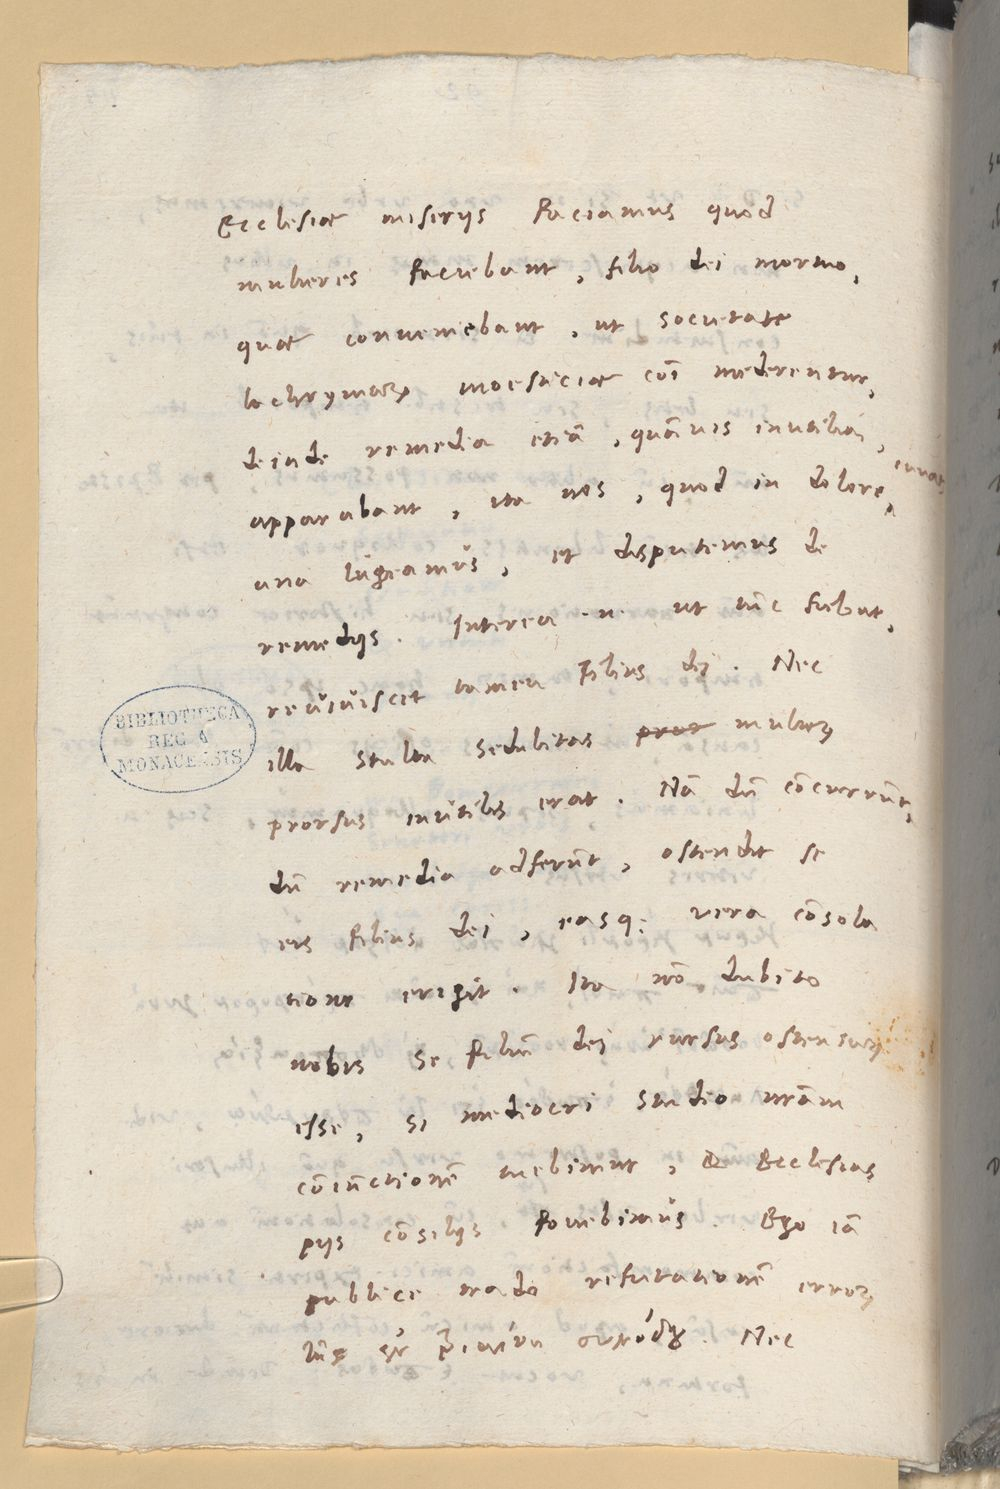 Ecclesiæ miserijs faciamus quod
mulieres faciebant, filio dei mortuo,
quæ conueniebant, ut societate
lachrymarꝝ moesticiæ cōi mederentur,
deinde remedia etiā, quāuis inutilia,
apparabant, ita nos, quod in dolore,
una lugeamus, et disputemus de
remedijs. Interea n. ut tūc fiebat,
reuiuiscet tamen filius dei. Nec
illa stulta sedulitas mulierꝝ
prorsus inutilis erat. Nā dū cōcurrūt,
dū remedia adferūt, ostendit se
eis filius dei, easq; vera cōsola
tione erigit. Ita nō dubito
nobis se filiū dei rursus ostensurꝝ
esse, si mediocri studio nrām
cōiūctionē tuebimur, & Ecclesias
pijs cōsilijs fouebimus. Ego iā
publice trado refutationē errorꝝ
Nec
BIBLIOTHECA
REGIA
MONACENSIS